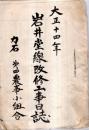 大正十四年
岩井堂線改修工事日誌
力石
第四農事小組合